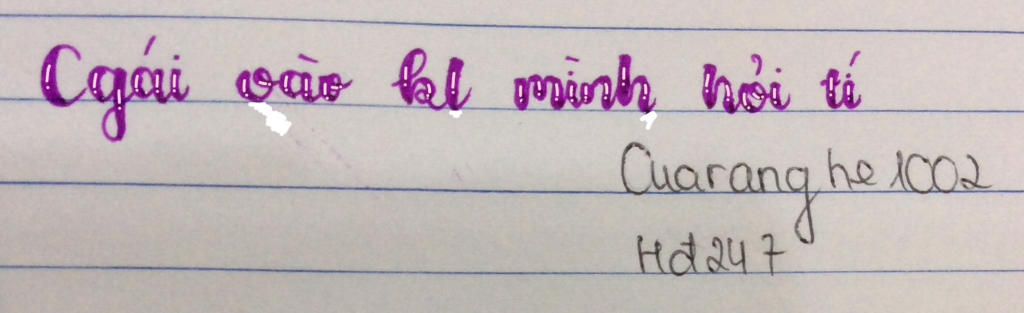 Cgái vào kl mình, hỏi tí
Cuaranghe1002
Hđ247